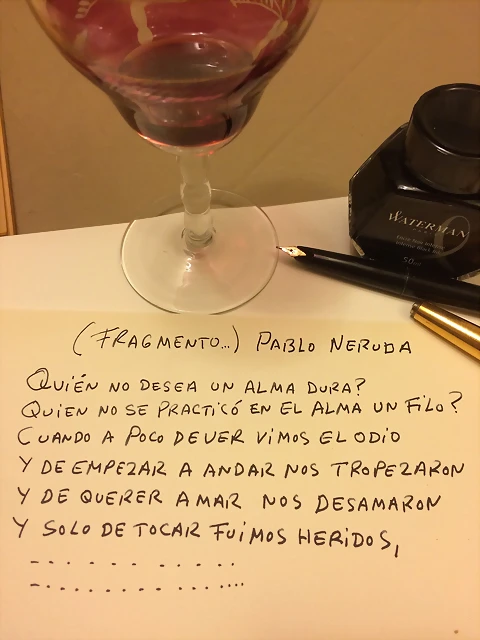 WATERMAN
50ml
(FRAGMENTO...) PABLO NERUDA
QUIÉN NO DESEA UN ALMA DURA?
QUIEN NO SE PRACTICÓ EN EL ALMA UN FILO?
CUANDO A POCO DE VER VIMOS EL ODIO
Y DE EMPEZAR A ANDAR NOS TROPEZARON
Y DE QUERER AMAR NOS DESAMARON
Y SOLO DE TOCAR FUIMOS HERIDOS,
-. . - . . . . . .
-. . . . . . . . . ....